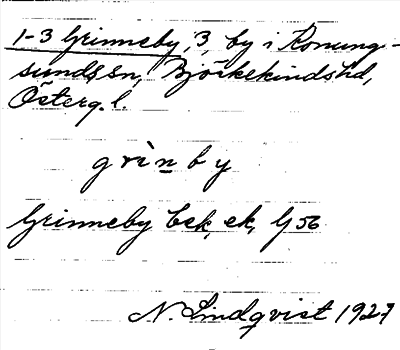 1-3 Grinneby, 3, by i Konung-
sunds sn, Björkekinds hd,
Österg. l.
grìnby
Grinneby Eek, ek, G 56
N. Lindqvist 1927